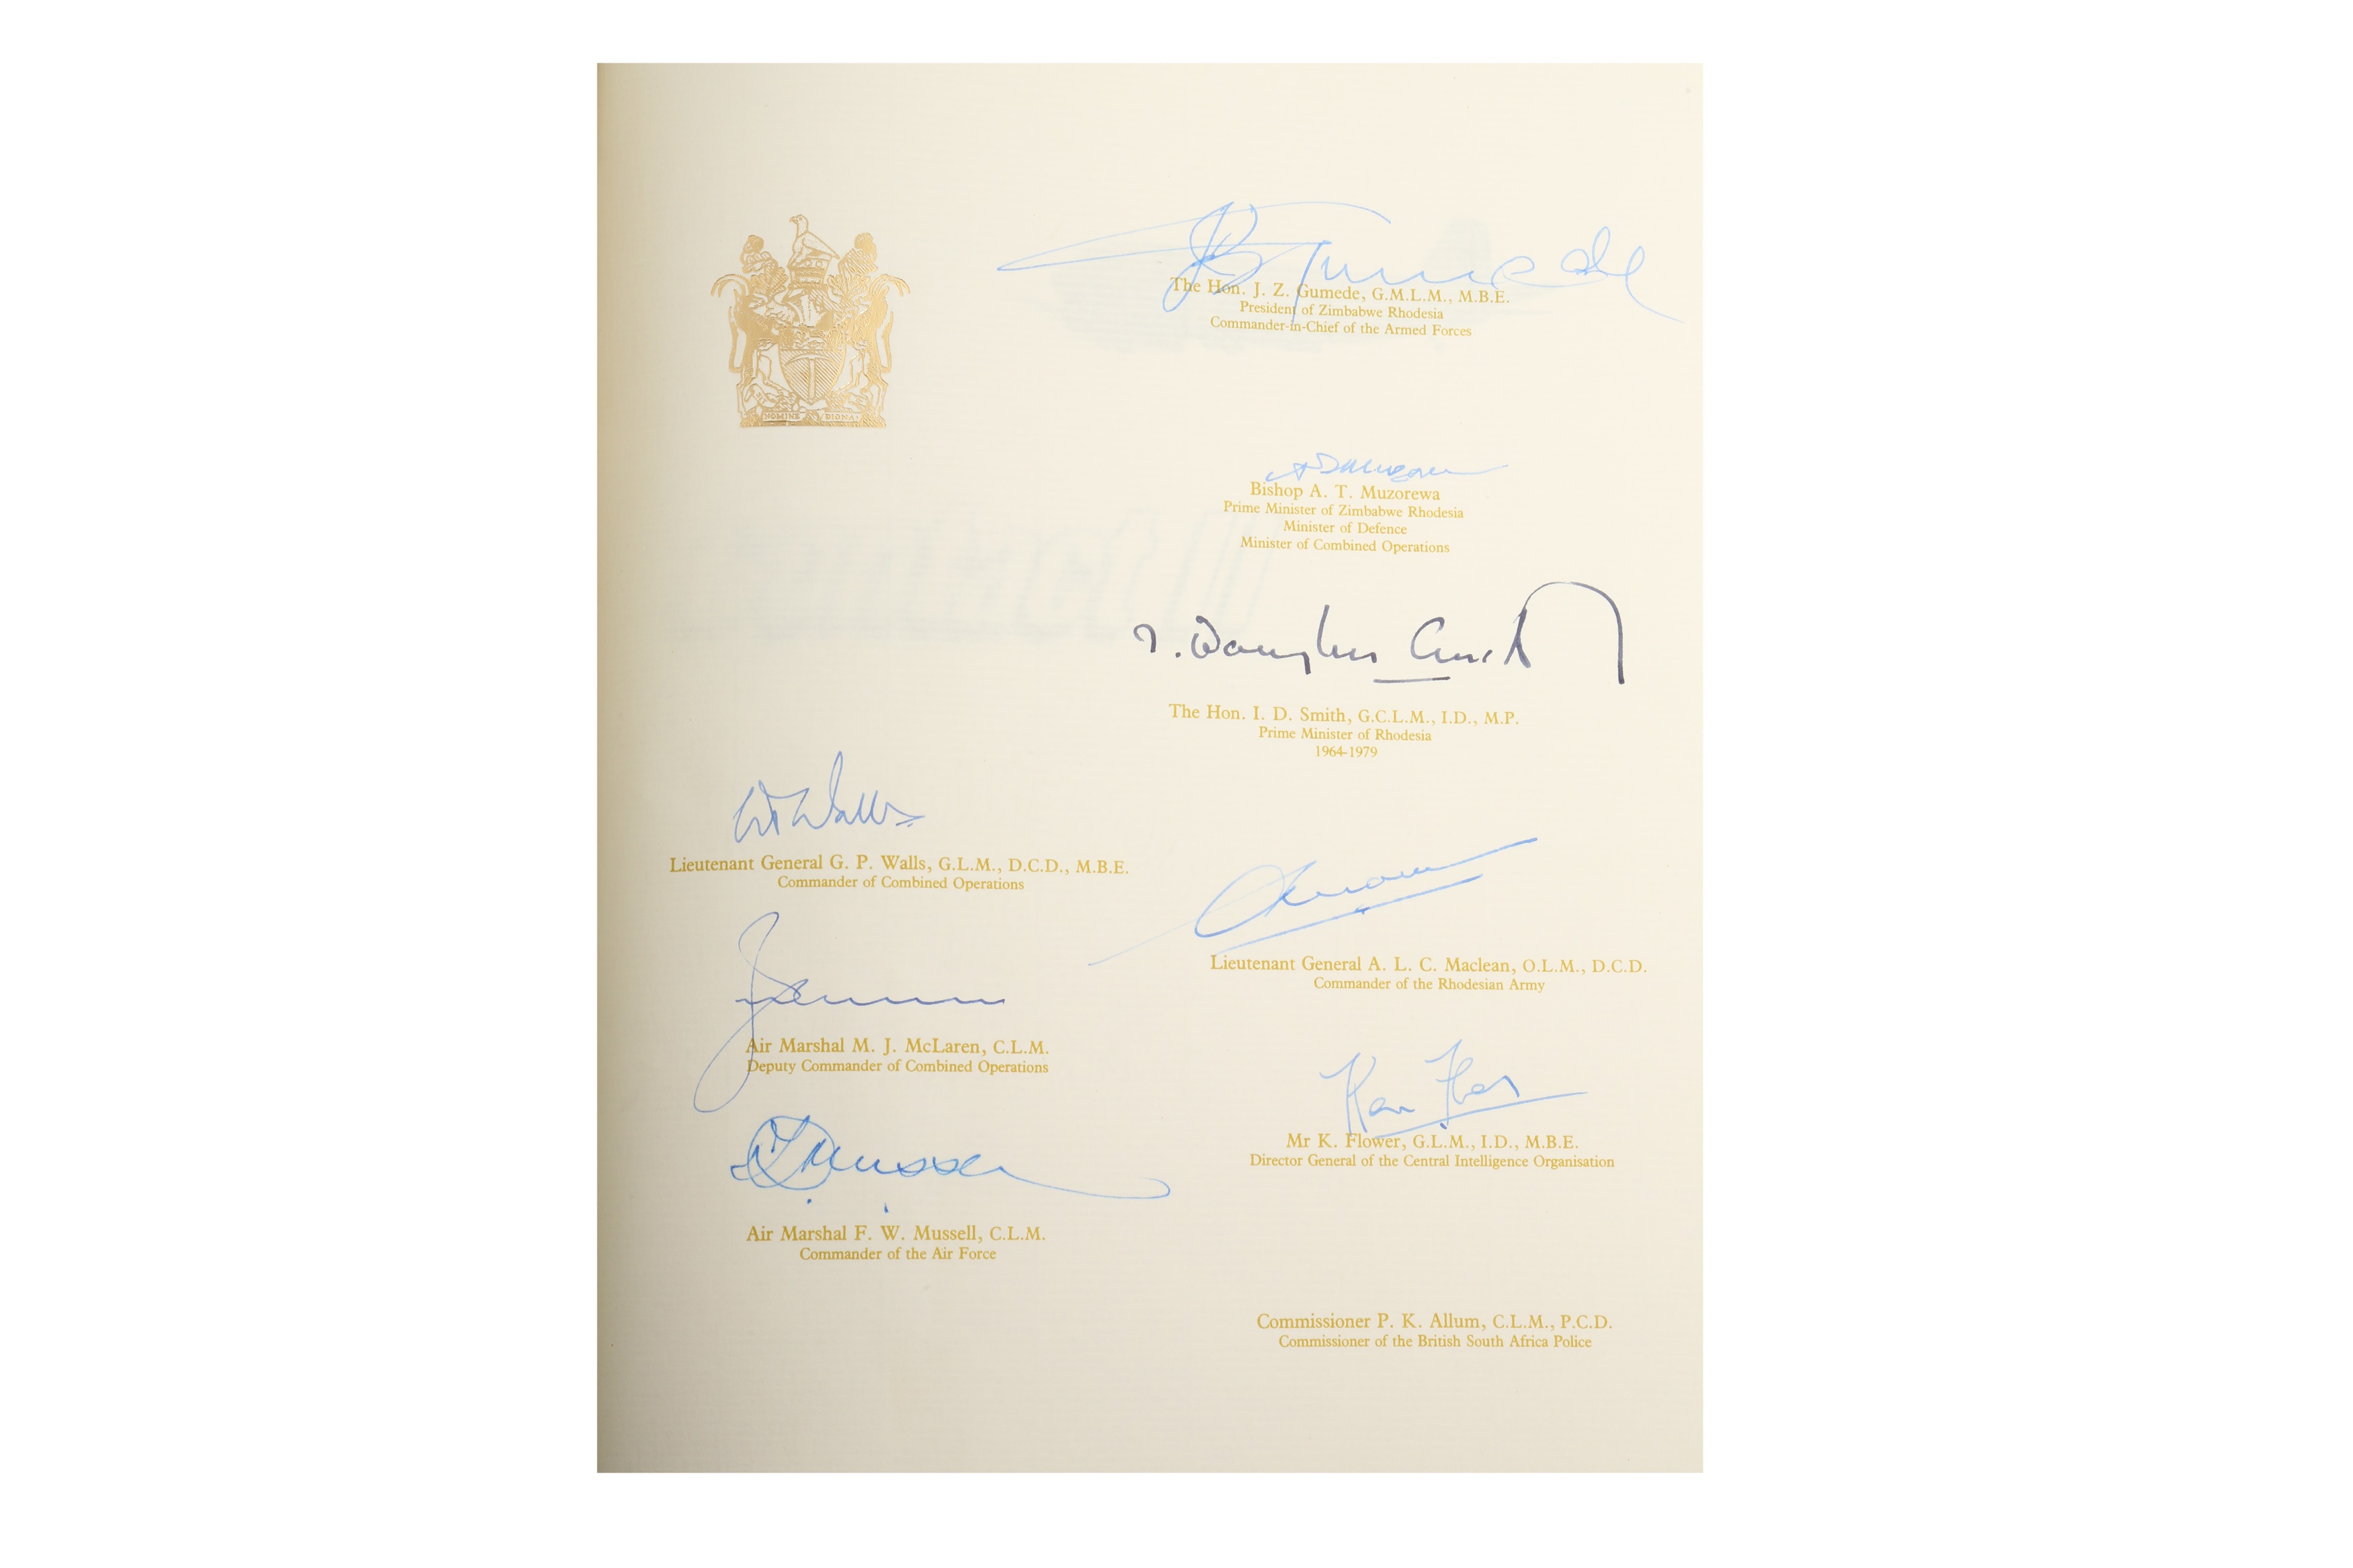 J Z Gumede
The Hon. J. Z. Gumede, G.M.L.M., M.B.E.
President of Zimbabwe Rhodesia
Commander-in-Chief of the Armed Forces
NOMINE DIGNA
Bishop A. T. Muzorewa
Prime Minister of Zimbabwe Rhodesia
Minister of Defence
Minister of Combined Operations
I. Douglas Smith
The Hon. I. D. Smith, G.C.L.M., I.D., M.P.
Prime Minister of Rhodesia
1964-1979
Walls
Lieutenant General G. P. Walls, G.L.M., D.C.D., M.B.E.
Commander of Combined Operations
Lieutenant General A. L. C. Maclean, O.L.M., D.C.D.
Commander of the Rhodesian Army
Air Marshal M. J. McLaren, C.L.M.
Deputy Commander of Combined Operations
Ken Flower
Mr K. Flower, G.L.M., I.D., M.B.E.
Director General of the Central Intelligence Organisation
Mussell
Air Marshal F. W. Mussell, C.L.M.
Commander of the Air Force
Commissioner P. K. Allum, C.L.M., P.C.D.
Commissioner of the British South Africa Police